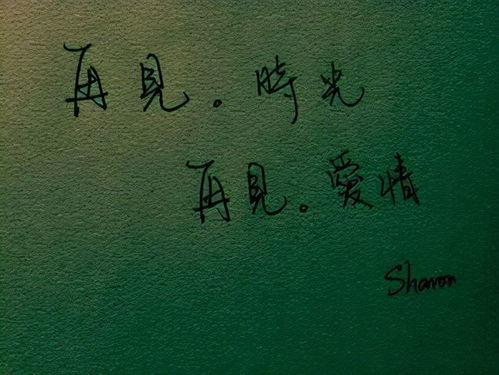 再見。時光
再見。愛情
Sharon